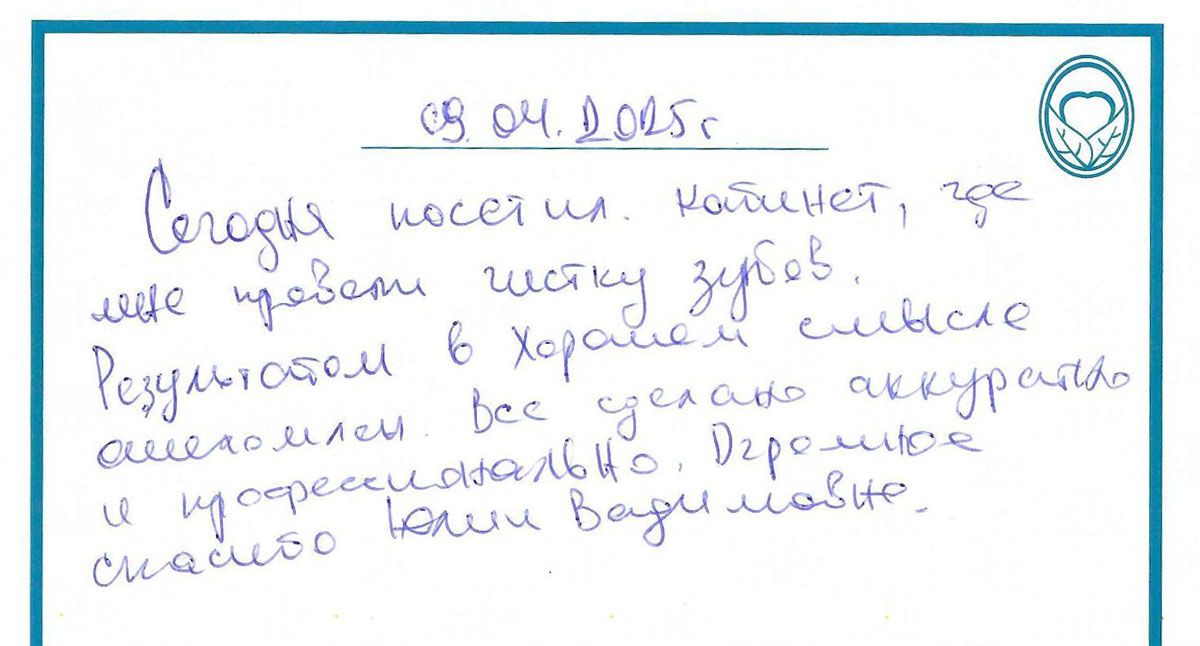 09.04.2025г
Сегодня посетил кабинет, где
мне провели чистку зубов.
Результатом в хорошем смысле
ошеломлен. Все сделано аккуратно
и профессионально. Огромное
спасибо Юлии Вадимовне.